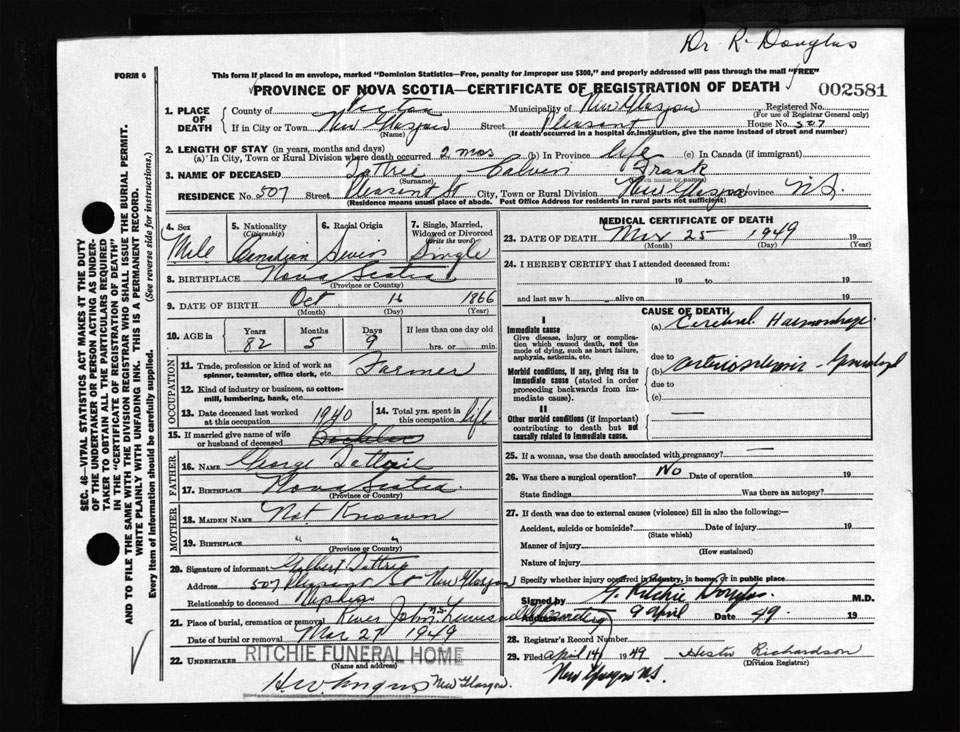 Dr R. Douglas
FORM 6
This form if placed in an envelope, marked "Dominion Statistics—Free, penalty for improper use $300," and properly addressed will pass through the mail "FREE"
PROVINCE OF NOVA SCOTIA—CERTIFICATE OF REGISTRATION OF DEATH
002581
1. PLACE OF DEATH
County of Pictou Municipality of New Glasgow Registered No.
(For use of Registrar General only)
If in City or Town New Glasgow Street Pleasant House No. 507
(Name) (If death occurred in a hospital or institution, give the name instead of street and number)
2. LENGTH OF STAY (in years, months and days)
(a) In City, Town or Rural Division where death occurred 2 mos (b) In Province life (c) In Canada (if immigrant)
3. NAME OF DECEASED Tattrie Calvin Frank
(Surname) (Given name or names)
RESIDENCE No. 507 Street Pleasant St City, Town or Rural Division New Glasgow Province N.S.
(Residence means usual place of abode. Post Office Address for residents in rural parts not sufficient)
4. Sex
Male
5. Nationality
(Citizenship)
Canadian
6. Racial Origin
Swiss
7. Single, Married, Widowed or Divorced
(write the word)
Single
8. BIRTHPLACE Nova Scotia
(Province or Country)
9. DATE OF BIRTH Oct 16 1866
(Month) (Day) (Year)
10. AGE in
Years Months Days If less than one day old
82 5 9 hrs. or min.
OCCUPATION
11. Trade, profession or kind of work as Farmer
spinner, teamster, office clerk, etc.
12. Kind of industry or business, as cotton-
mill, lumbering, bank, etc.
13. Date deceased last worked
at this occupation 1940
14. Total yrs. spent in
this occupation life
15. If married give name of wife
or husband of deceased Bachelor
FATHER
16. NAME George Tattrie
17. BIRTHPLACE Nova Scotia
(Province or Country)
MOTHER
18. MAIDEN NAME Not Known
19. BIRTHPLACE " "
(Province or Country)
20. Signature of informant Gilbert Tattrie
Address 507 Pleasant St New Glasgow
Relationship to deceased Nephew
21. Place of burial, cremation or removal River John N.S.
Date of burial or removal Mar 27 1949
22. UNDERTAKER RITCHIE FUNERAL HOME
(Name and address)
New Glasgow.
MEDICAL CERTIFICATE OF DEATH
23. DATE OF DEATH Mar 25 1949
(Month) (Day) (Year)
24. I HEREBY CERTIFY that I attended deceased from:
19 to 19
and last saw h alive on 19
I
Immediate cause
Give disease, injury or complication which caused death, not the mode of dying, such as heart failure, asphyxia, asthenia, etc.
Morbid conditions, if any, giving rise to immediate cause (stated in order proceeding backwards from immediate cause).
II
Other morbid conditions (if important) contributing to death but not causally related to immediate cause.
CAUSE OF DEATH
(a) Cerebral Haemorrhage
due to
(b) Arteriosclerosis - Generalized
due to
(c)
25. If a woman, was the death associated with pregnancy? —
26. Was there a surgical operation? No Date of operation 19
State findings Was there an autopsy?
27. If death was due to external causes (violence) fill in also the following:—
Accident, suicide or homicide? Date of injury 19
(State which)
Manner of injury
(How sustained)
Nature of injury
Specify whether injury occurred in industry, in home, or in public place
Signed by G. Ritchie Douglas M.D.
Address Date 9 April 49. 19
28. Registrar's Record Number
29. Filed April 14 1949 Hester Richardson
(Division Registrar)
New Glasgow N.S.
SEC. 46—VITAL STATISTICS ACT MAKES IT THE DUTY
OF THE UNDERTAKER OR PERSON ACTING AS UNDER-
TAKER TO OBTAIN ALL THE PARTICULARS REQUIRED
IN THE "CERTIFICATE OF REGISTRATION OF DEATH"
AND TO FILE THE SAME WITH THE DIVISION REGISTRAR WHO SHALL ISSUE THE BURIAL PERMIT.
WRITE PLAINLY WITH UNFADING INK. THIS IS A PERMANENT RECORD.
Every item of Information should be carefully supplied. (See reverse side for instructions.)